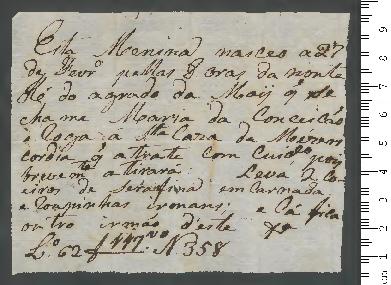 Esta Menina nasceo a 27
de Fevrº pellas 8 oras da noute
He do agrado da Maij q̃ se
chame Maria da Conceicão
e Roga a Sta Caza da Mizeri
cordia q̃ a trate com Cuidº pois
brevemte a tirará Leva 2 Co
eiros de Serafina emcarnada
e Roupinhas e lá fica
outro irmão d'este
Lº 62 f 117 vº Nº 358